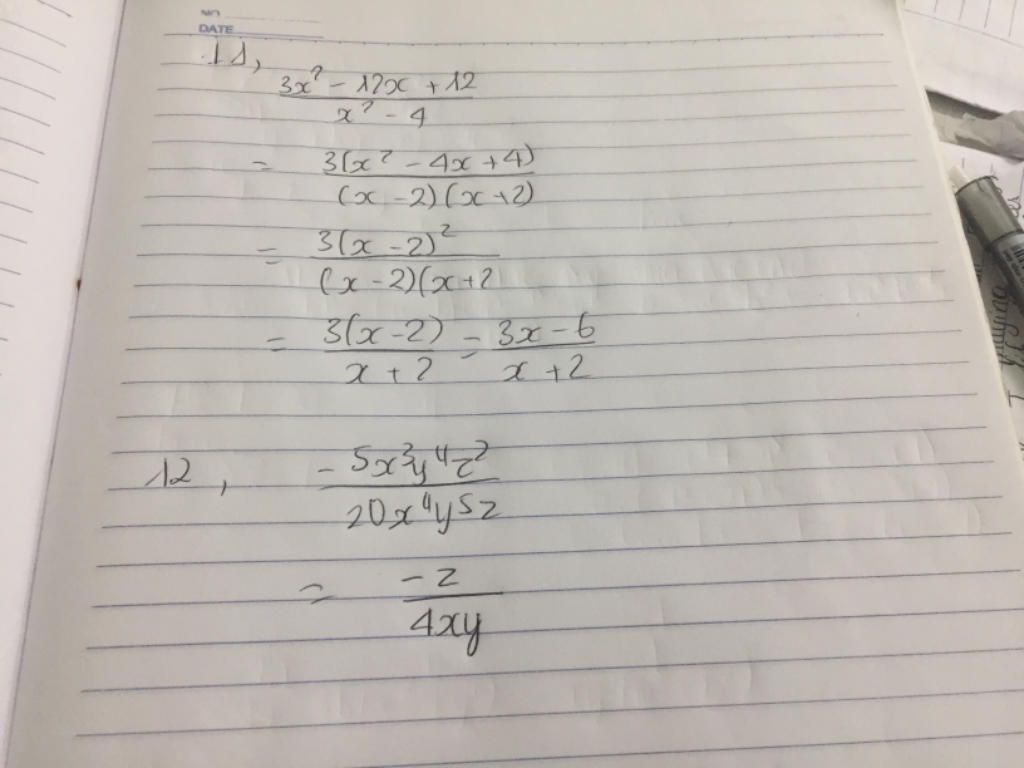 NO
DATE
11,
3x² - 12x + 12
x² - 4
= 3(x² - 4x + 4)
(x - 2)(x + 2)
= 3(x - 2)²
(x - 2)(x + 2
= 3(x - 2) = 3x - 6
x + 2 x + 2
12, - 5x³y⁴z²
20x⁴y⁵z
= - z
4xy